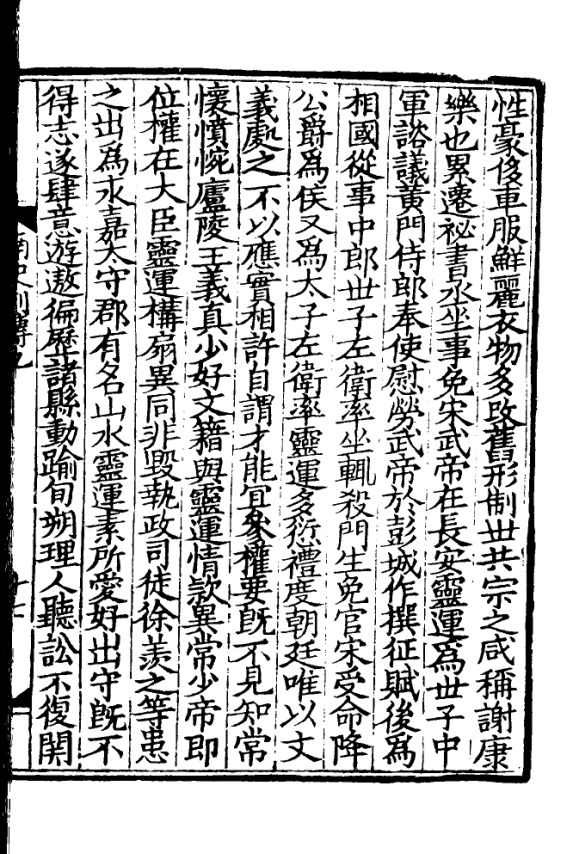 性豪侈車服鮮麗衣物多改舊形制世共宗之咸稱謝康
樂也累遷祕書丞坐事免宋武帝在長安靈運爲世子中
軍諮議黃門侍郎奉使慰勞武帝於彭城作撰征賦後爲
相國從事中郎世子左衛率坐輒殺門生免官宋受命降
公爵爲侯又爲太子左衛率靈運多愆禮度朝廷唯以文
義處之不以應實相許自謂才能宜參權要旣不見知常
懷憤惋廬陵王義真少好文籍與靈運情款異常少帝即
位權在大臣靈運構扇異同非毀執政司徒徐羨之等患
之出爲永嘉太守郡有名山水靈運素所愛好出守旣不
得志遂肆意游遨徧歷諸縣動踰旬朔理人聽訟不復関
南史列傳九